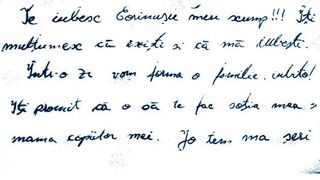 Te iubesc Corinusu meu scump!!! Iți
mulțumesc că exiști și că mă iubești.
Intr-o zi vom forma o familie, iubito!
Iți promit că o să te fac soția mea =
mama copiilor mei. Jo tem ma seri